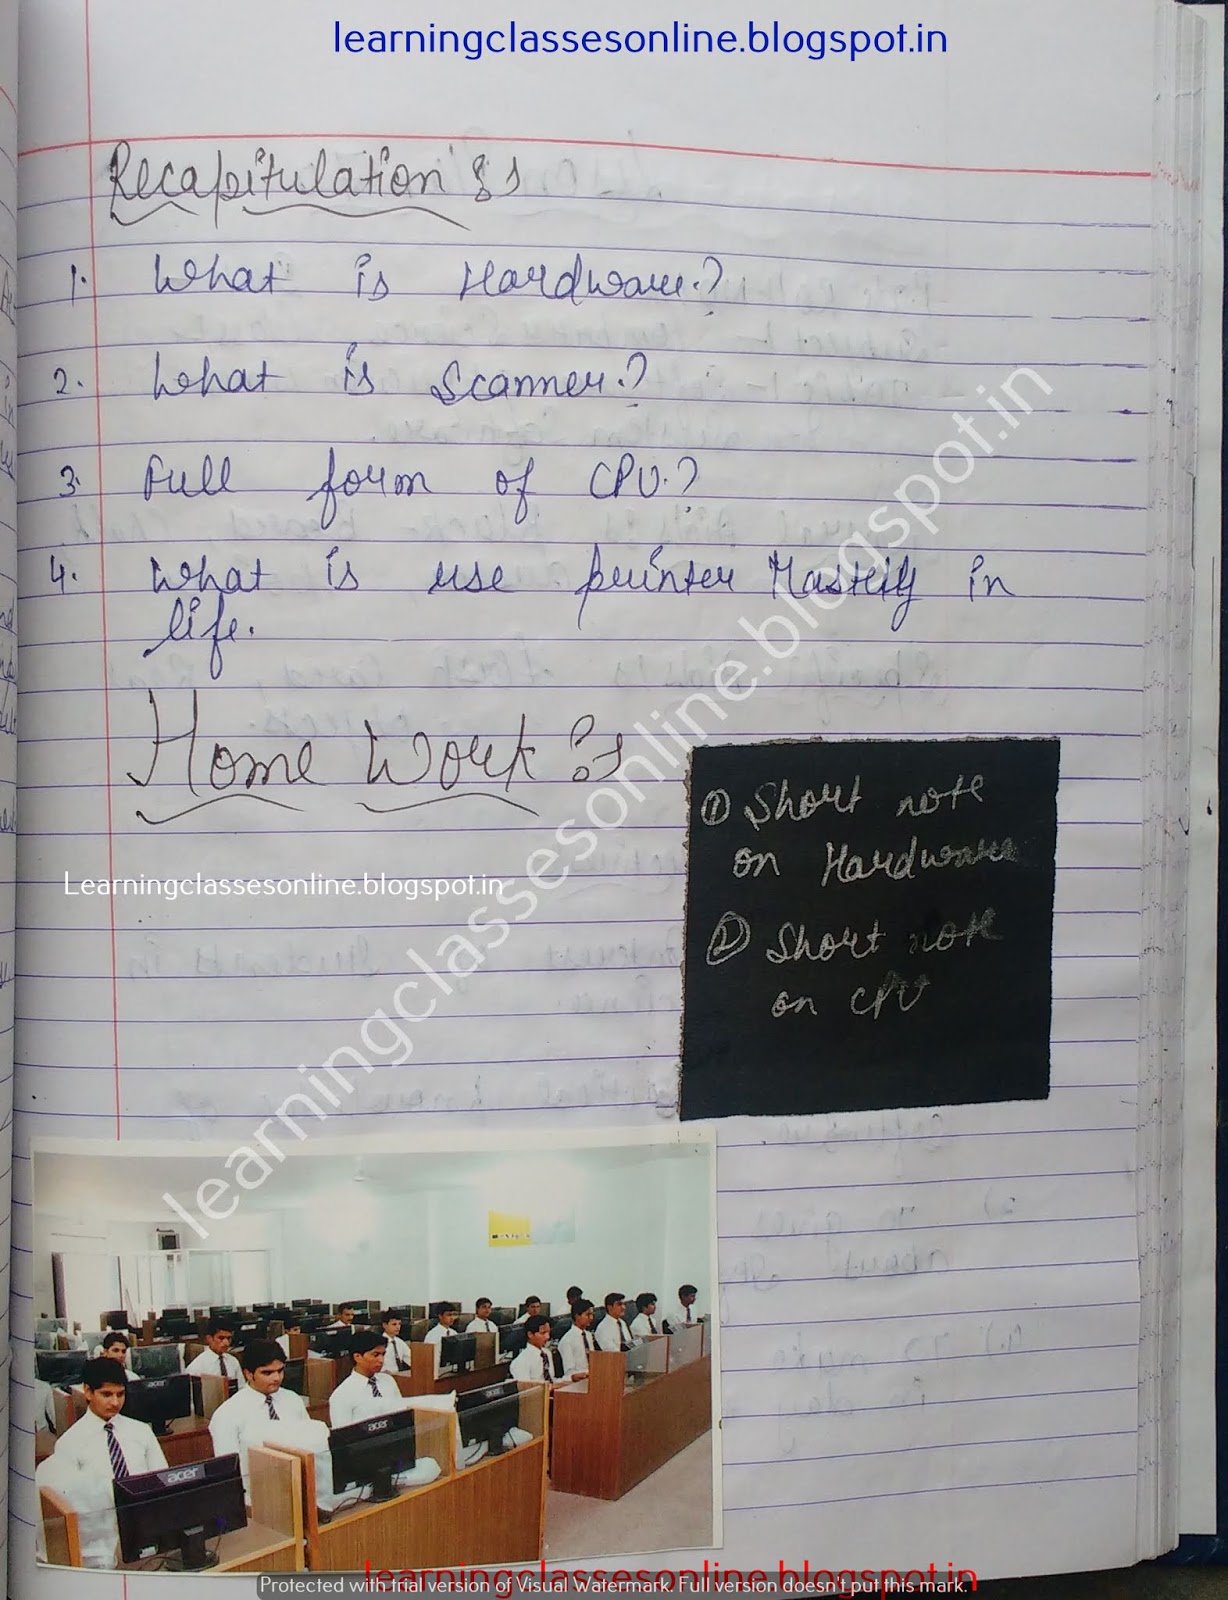 learningclassesonline.blogspot.in
Recapitulation :-
1. What is Hardware.?
2. What is Scanner.?
3. Full form of CPU.?
4. What is use printer in
life.
Home Work :-
① Short note
on Hardware
② Short note
on CPU
Learningclassesonline.blogspot.in
learningclassesonline.blogspot.in
acer
acer
acer
learningclassesonline.blogspot.in
Protected with trial version of Visual Watermark. Full version doesn't put this mark.